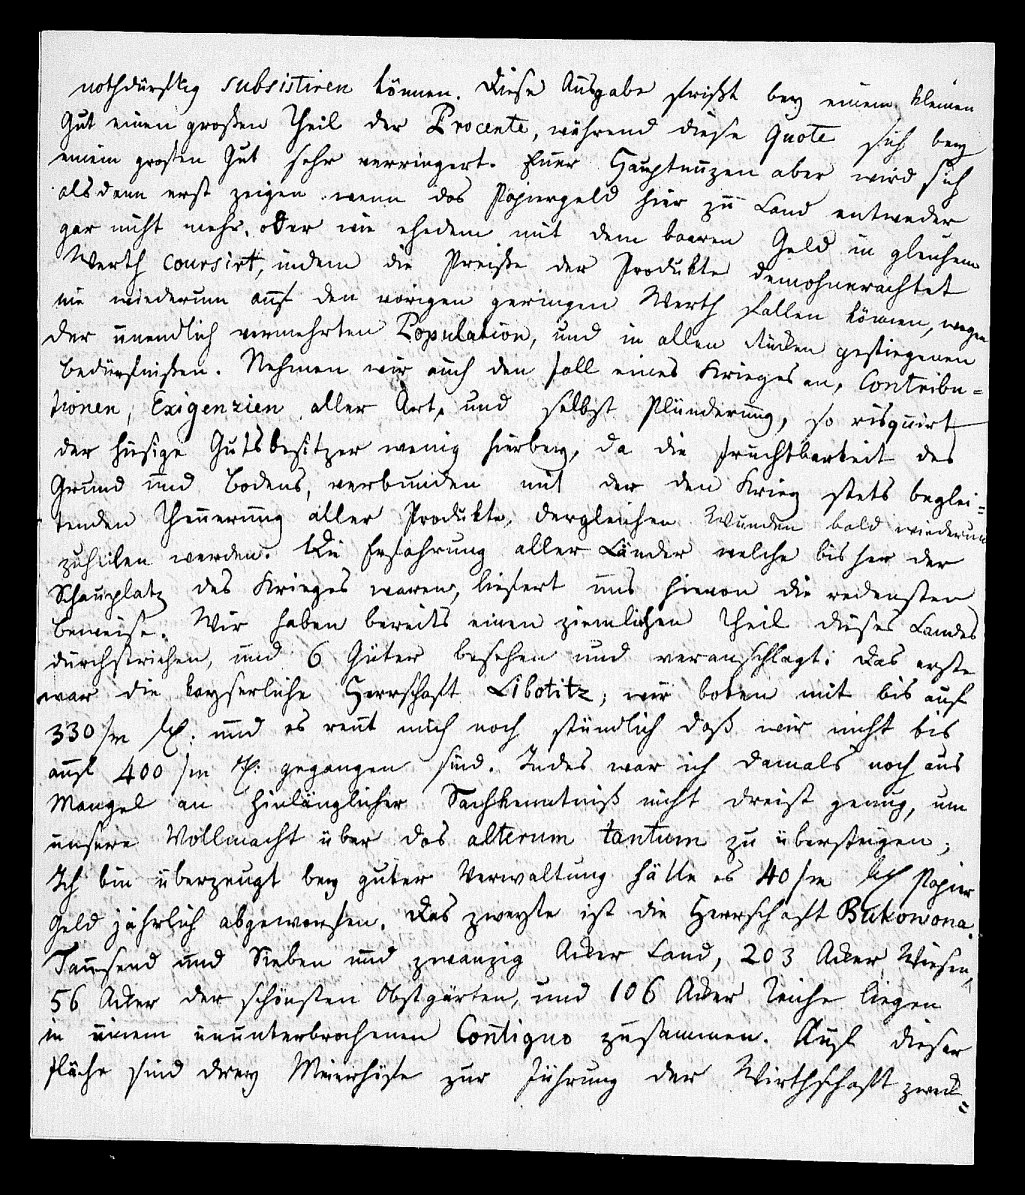 nothdürftig subsistiren können. Diese Ausgabe frißt bey einem kleinen
Gut einen großen Theil der Procente, während diese Quote sich bey
einem großen Gut sehr verringert. Euer Hauptnuzen aber wird sich
alsdenn erst zeigen wenn das Papiergeld hier zu Land entweder
gar nicht mehr, oder wie ehedem mit dem baaren Geld in gleichem
Werth coursirt, indem die Preiße der Produkte demohnerachtet
nie wiederum auf den vorigen geringen Werth fallen können, wegen
der unendlich vermehrten Population, und in allen Stücken gestiegenen
Bedürfnißen. Nehmen wir auch den Fall eines Krieges an, Contribu=
tionen, Exigenzien aller Art, und selbst Plünderung, so risquirt
der hiesige Gutsbesitzer wenig hierbey, da die Fruchtbarkeit des
Grund und Bodens, verbunden mit der den Krieg stets beglei=
tenden Theuerung aller Produkte, dergleichen Wunden bald wiederum
zuheilen werden. Die Erfahrung aller Länder welche bisher der
Schauplatz des Krieges waren, liefert uns hievon die redensten
Beweise. Wir haben bereits einen ziemlichen Theil dieses Landes
durchstrichen, und 6 Güter besehen und veranschlagt. Das erste
war die kayserliche Herrschaft Libotitz; wir boten mit bis auf
330/m und es reut mich noch stündlich daß wir nicht bis
auf 400/m gegangen sind. Indes war ich damals noch aus
Mangel an hinlänglicher Sachkenntniß nicht dreist genug, um
unsere Vollmacht über das alterum tantum zu übersteigen;
Ich bin überzeugt bey guter Verwaltung hätte es 40/m Papier
Geld jährlich abgeworfen. Das zweyte ist die Herrschaft Bukowona.
Tausend und Sieben und zwanzig Acker Land, 203 Acker Wiesen,
56 Acker der schönsten Obstgärten, und 106 Acker Teiche liegen
in einem ununterbrochenen Contiguo zusammen. Auf dieser
Fläche sind drey Meierhöfe zur Führung der Wirthschaft zweck=